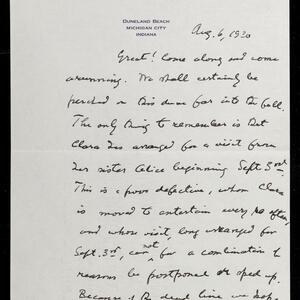 DUNELAND BEACH
MICHIGAN CITY
INDIANA
Aug. 6, 1930
Great! Come along and come
arunning. We shall certainly be
perched on this dune far into the fall.
The only thing to remember is that
Clara has arranged for a visit from
her sister Alice beginning Sept. 3rd.
This is a poor defective, whom Clara
is moved to entertain every so often,
and whose visit, long arranged for
Sept. 3rd, cannot for a combination of
reasons be postponed or sped up.
Because of the dead line we hope